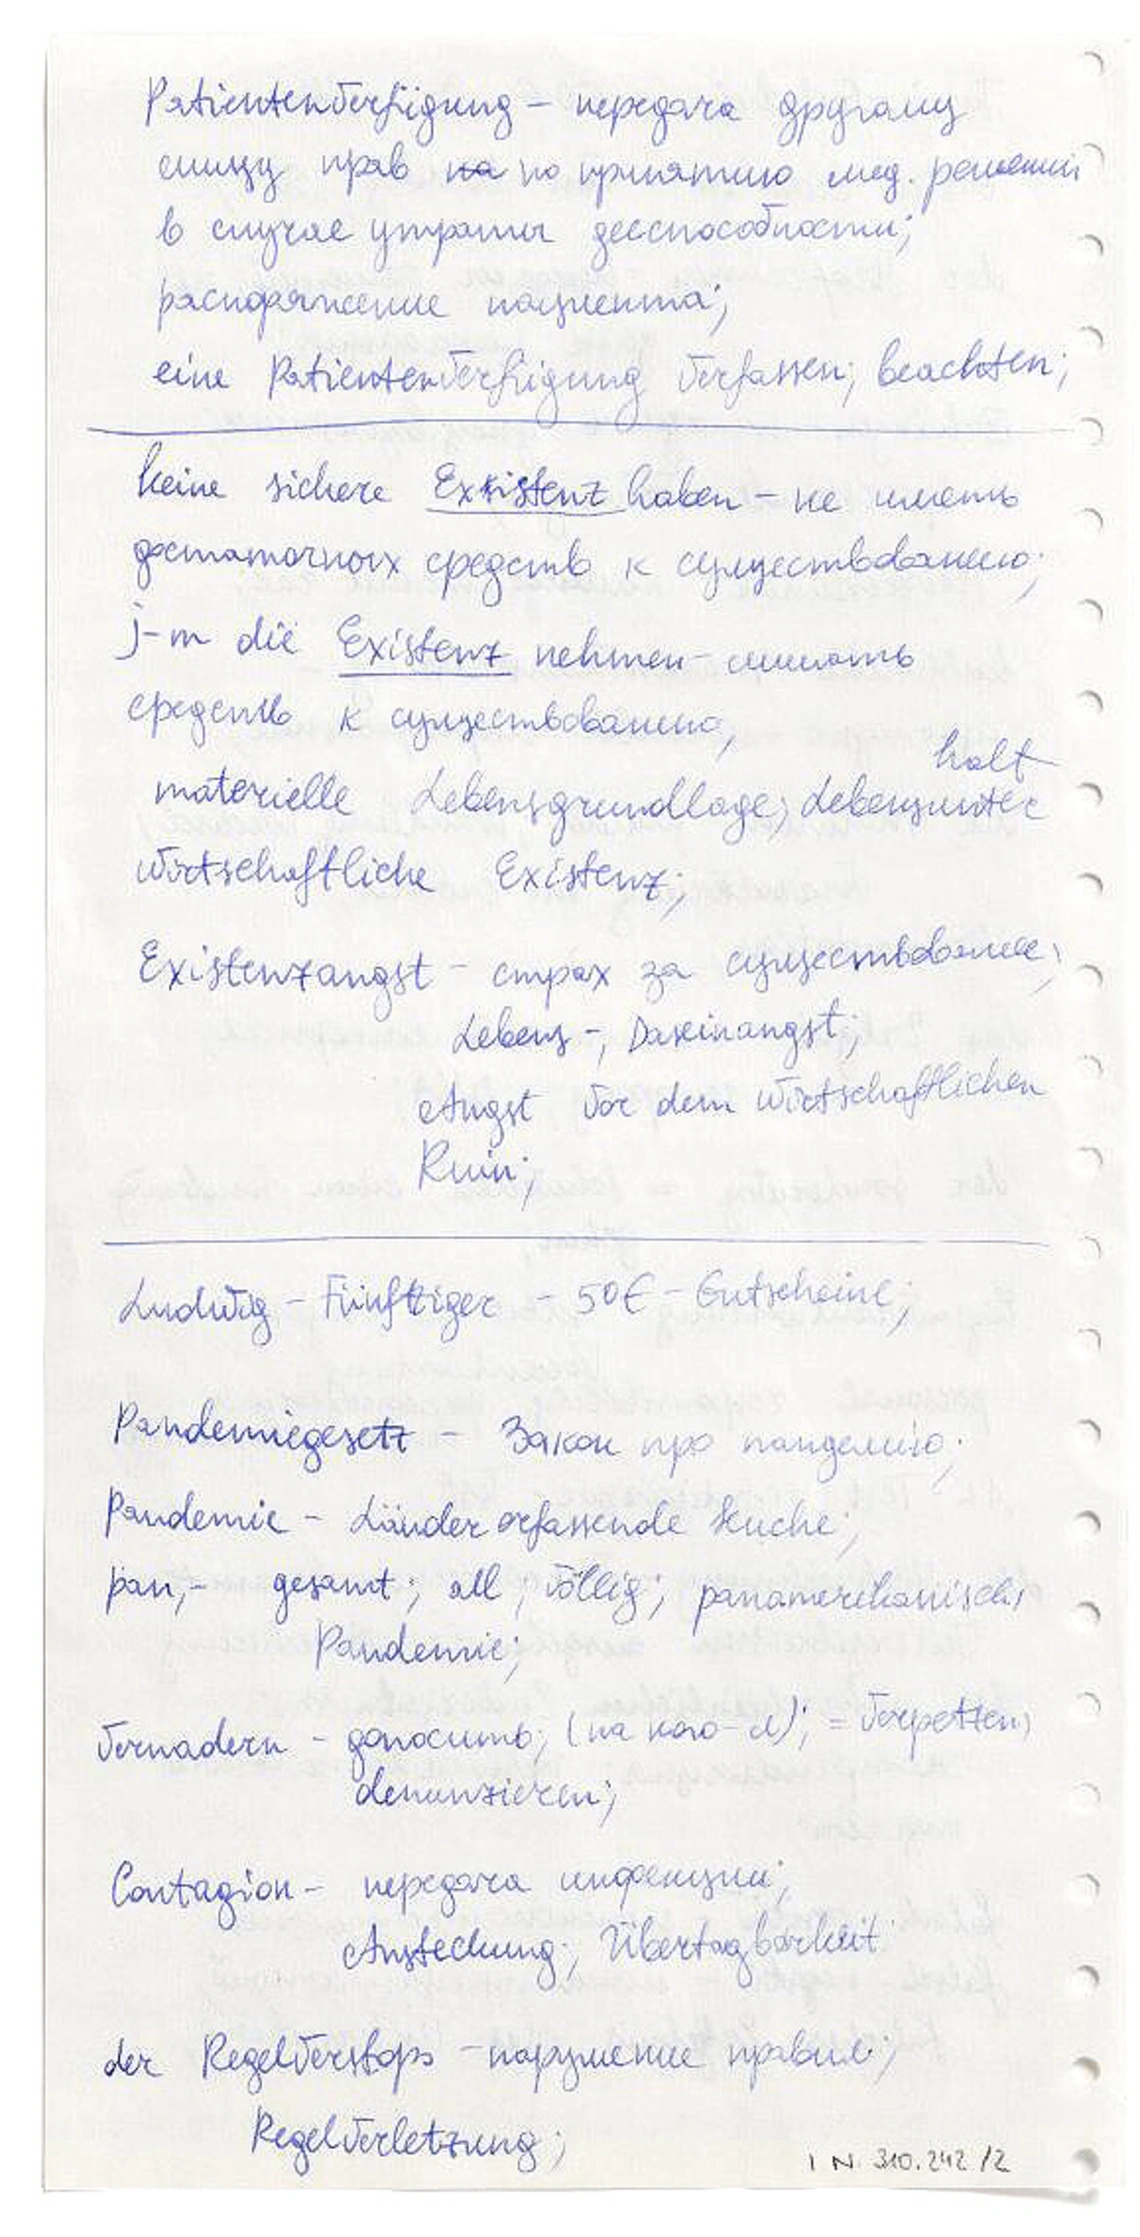 Patientenverfügung – передача другому
лицу прав на по принятию мед. решений
в случае утраты дееспособности;
распоряжение пациента;
eine Patientenverfügung verfassen; beachten;
keine sichere Existenz haben – не иметь
достаточных средств к существованию;
j-m die Existenz nehmen – лишать
средств к существованию;
halt
materielle Lebensgrundlage; Lebensunter
wirtschaftliche Existenz;
Existenzangst – страх за существование;
Lebens-, Daseinangst;
Angst vor dem wirtschaftlichen
Ruin;
Ludwig – Fünfziger – 50€ – Gutscheine;
Pandemiegesetz – Закон про пандемію;
Pandemie – Länder erfassende Seuche;
pan,- gesamt; all; völlig; panamerikanisch;
Pandemie;
Vernadern – доносить; (на кого-л); = verpetzen;
denunzieren;
Contagion – передача инфекции;
Ansteckung; Übertragbarkeit
der Regelverstoß – нарушение правил;
Regelverletzung;
I N. 310.242 /2